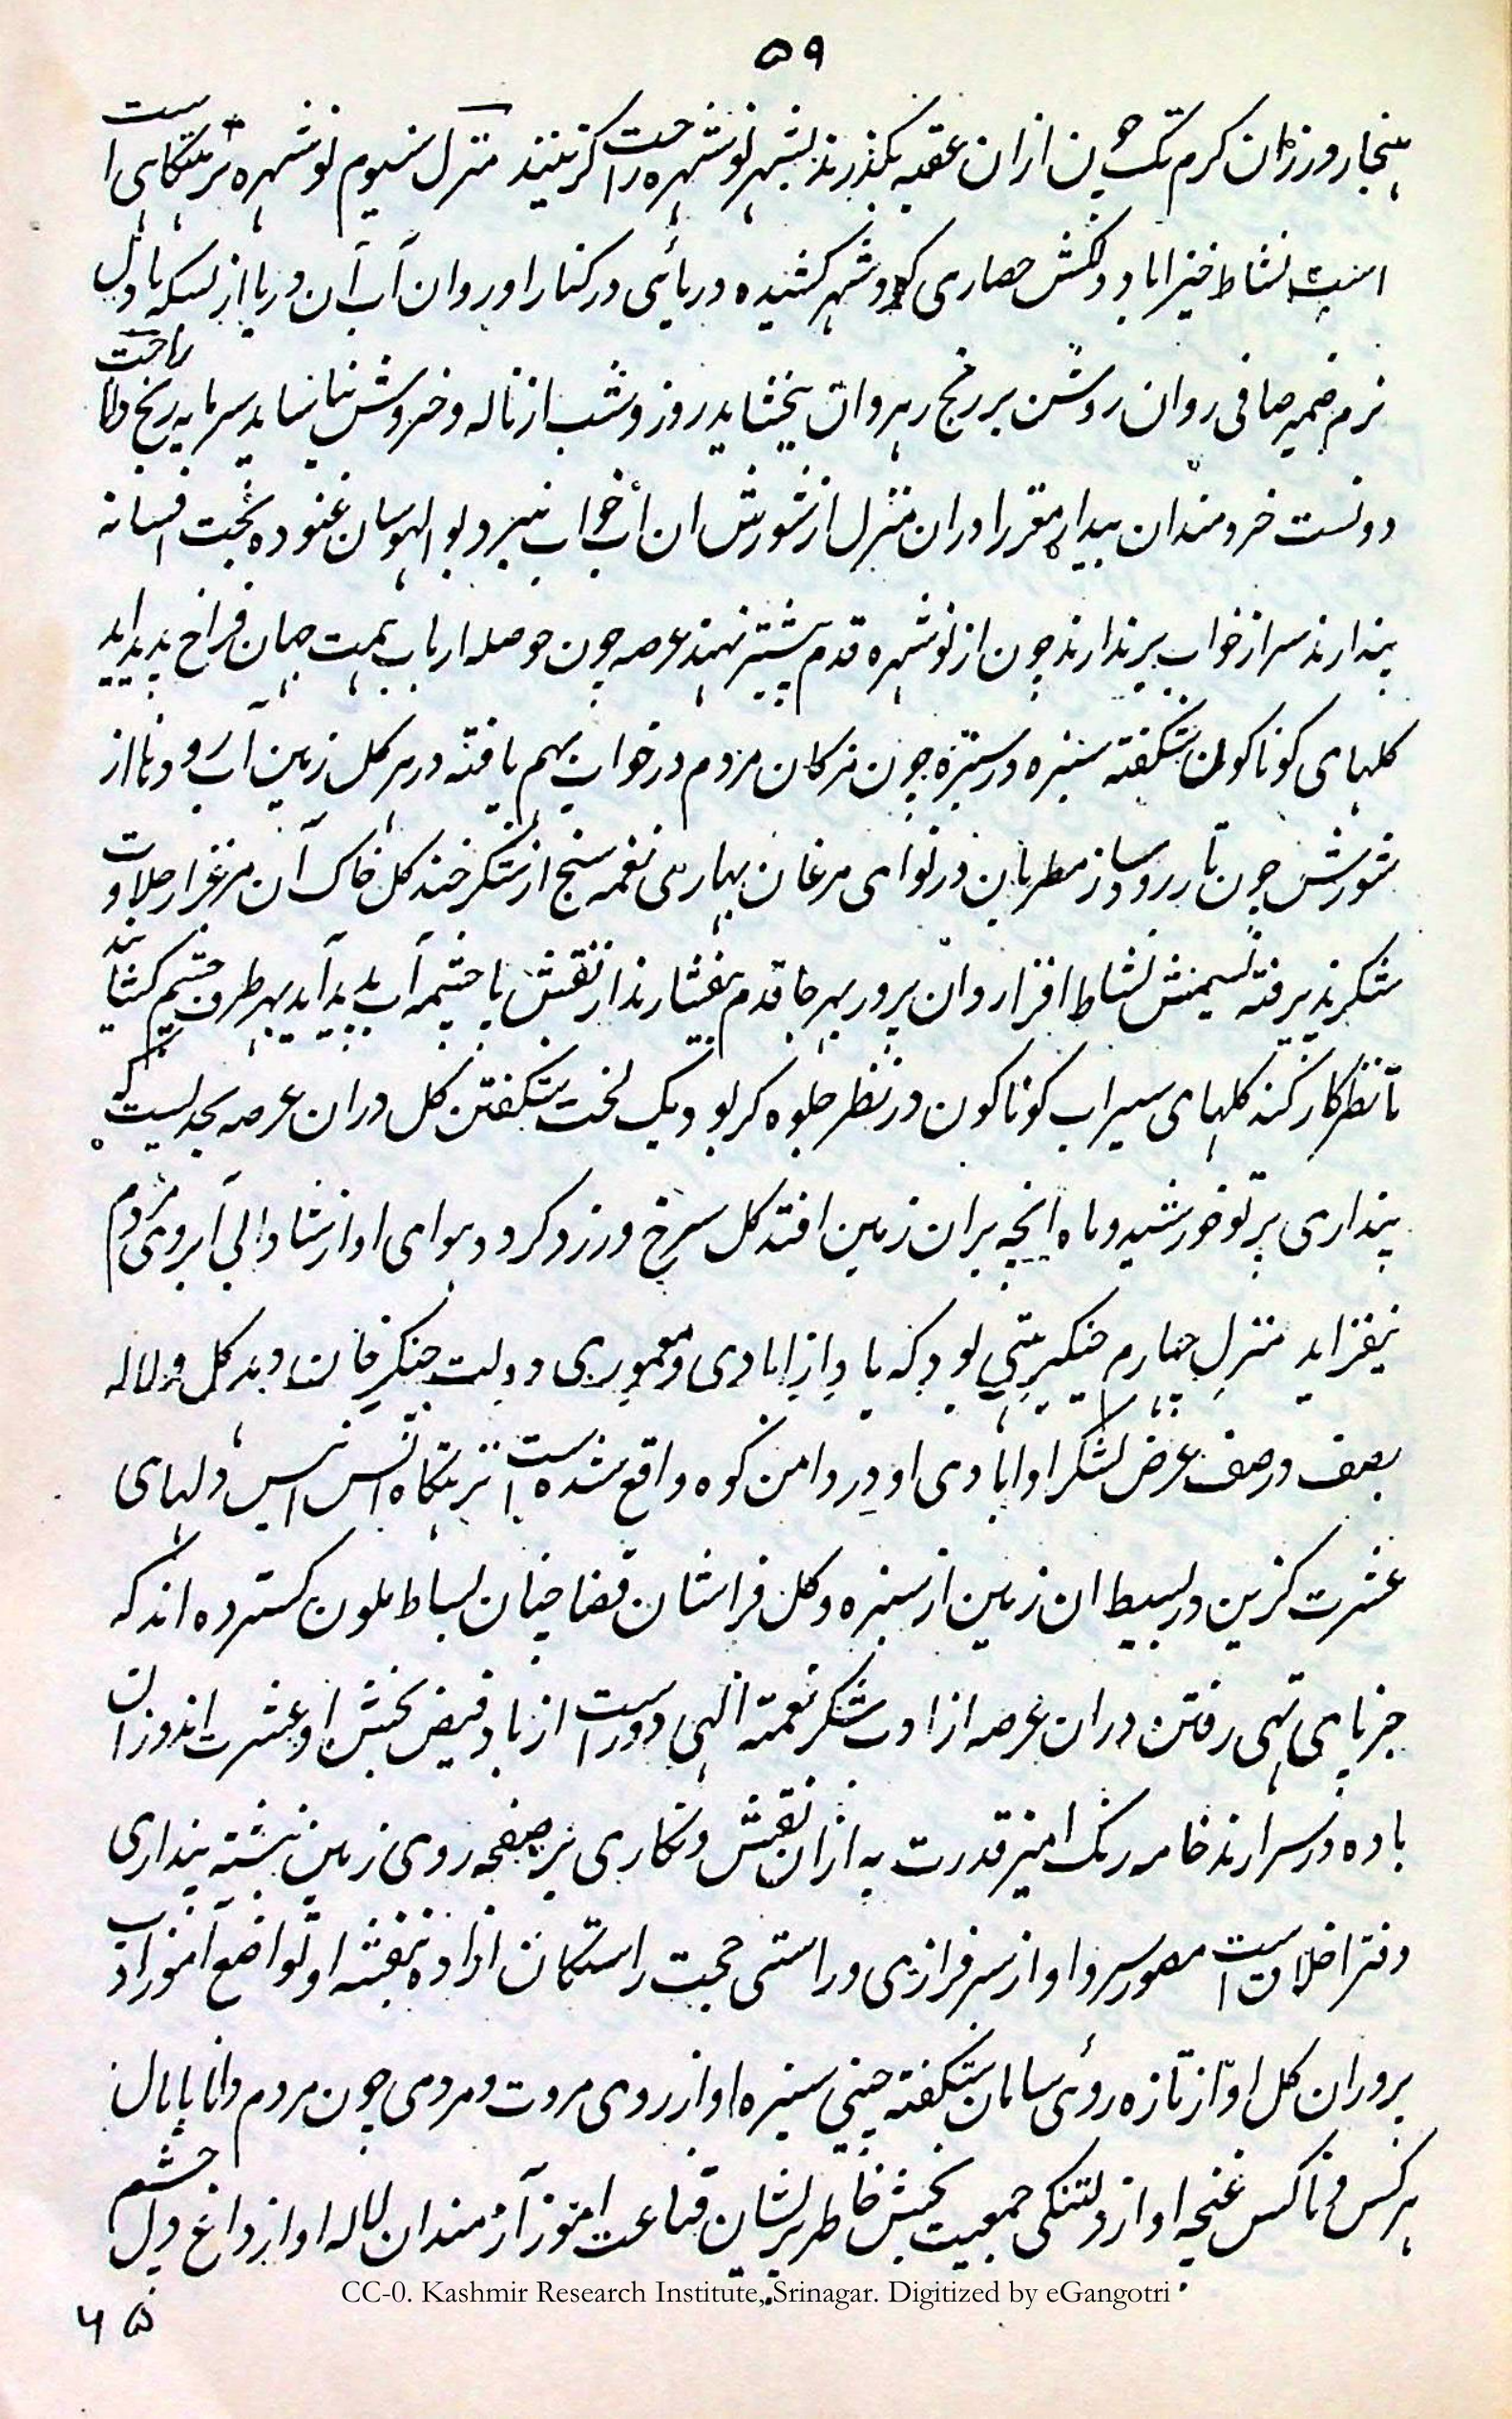 ۵۹
هنجار ورزان کرم تک چون ازان عقبه بگذرند بشهر نوشهره راحت گزینند منزل سیوم نوشهره نزهتگاهی است
است نشاط خیز اباد دلکش حصاری کرد شهر کشیده دریائی در کنار او روان آب آن دریا از بسکه با دل
نرم ضمیر صافی روان روشن بر رنج رهروان بخشاید روز و شب از ناله و خروش نیاساید سرمایه رنج و راحت
دونست خردمندان بیدار مغز را دران منزل از شورش ان آب خواب نبرد بو الهوسان غنوده بخت افسانه
پندارند سر از خواب برندارند چون از نوشهره قدم پیشتر نهند عرصه چون حوصله ارباب همت جهان فراخ پدید اید
کلهای کوناکون شکفته سبزه در سبزه چون مژکان مردم در خواب بهم یافته در هر کل زمین آب رود نا از
شورش چون تار رود ساز مطربان در نوای مرغان بهاری نغمه سنج از شکر خند کل خاک آن مرغزار حلاوت
شکر پذیرفته نسیمش نشاط افزا روان پرور بهرجا قدم بفشارند از نقش پا چشمه آب پدید آید بهر طرف چشم کشایند
تا نظر کار کند کلهای سیراب کوناکون در نظر جلوه کر بود یک لخت شکفتن کل دران عرصه بحدیست که
پنداری پرتو خورشید و ماه انچه بران زمین افتد کل سرخ و زرد کردد هوای او از شادابی آبروی مردم
بیفزاید منزل چهارم چنکیز هتی بود که یاد از ابادی و معموری دولت چنکیز خان دهد کل و لاله
بصف در صف عرض لشکر او ابادی او در دامن کوه واقع شده است نزهتکاه انس انیس دلهای
عشرت کزین در بسیط ان زمین از سبزه و کل فراشان قضا چنان بساط ملون کسترده اند که
جز بپای تهی رفتن دران عرصه از ادب شکر نعمته الهی دور است از باد فیض بخش او عشرت اندوزان
باده در سر ارند خامه رنک امیز قدرت به ازان نقش و نکاری بر صفحه روی زمین نبشته پنداری
دفتر اخلاق است مصور سرو او از سرفرازی و راستی حجت راستکان ازاده بنفشه او تواضع آموز ادب
پروران کل او از تازه روئی سامان شکفته جبینی سبزه او از روی مروت و مردمی چون مردم دانا پایمال
هر کس و ناکس غنچه او از دلتنکی جمعیت بخش خاطر پریشان قناعت اموز آزمندان لاله او از داغ دل چشم
CC-0. Kashmir Research Institute, Srinagar. Digitized by eGangotri
۶۵